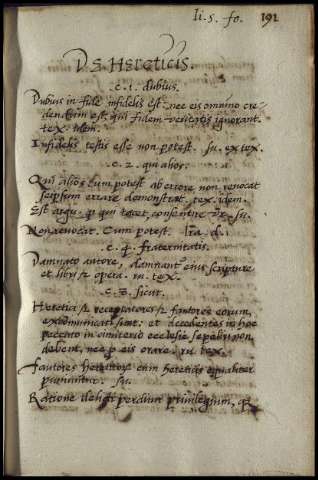 li. 5. fo. 191
De Hereticis.
c. 1. dubius.
Dubius in fide infidelis est. nec eis omnino cre-
dendum est, qui fidem veritatis ignorant.
tex. idem.
Infidelis testis esse non potest. su. ex tex.
c. 2. qui alios.
Qui alios cum potest ab errore non revocat
seipsum errare demonstrat. tex. idem.
Est argu. qd qui tacet, consentire su.
Non revocat. Cum potest. lra. d.
c. fraternitatis.
Damnato autore, damnantr eius scripture
et libri opera. tex.
c. 8. sicut.
Heretici et receptatores et fautores eorum,
excommunicati sunt. et decedentes in hoc
peccato in cimiterio ecclesie sepeliri non
debent, nec p eis orare. tex.
fautores hereticor cum hereticis equaliter
puniuntur. su.
Ratione delicti perditur privilegium, qd